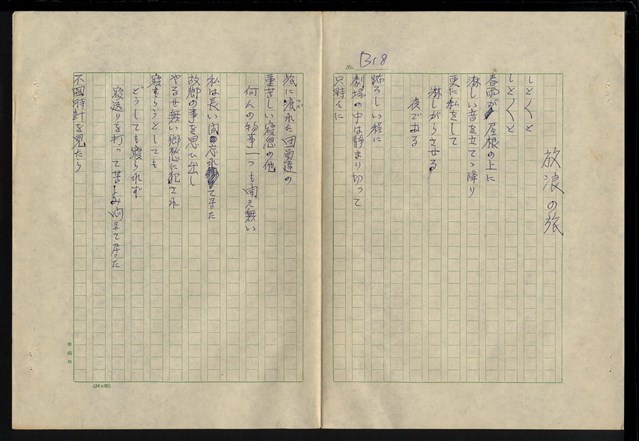 B18
放浪の旅
しと〱と
しと〱と
春雨が屋根の上に
淋しい音を立てゝ降り
更に私をして
淋しがらせる
夜である
恐ろしい程に
劇場の中は静まり切って
只時々に
旅に疲れた田男達の
重苦しい寝息の他
何んの物事一つも聞え無い
私は長い間
て居た
故郷の事を思ひ出し
やるせ無い郷愁に犯され
寝もらうとしても
どうしても寝られず
寝返りを打って苦しみ悶えて居た
不図時計を見たら